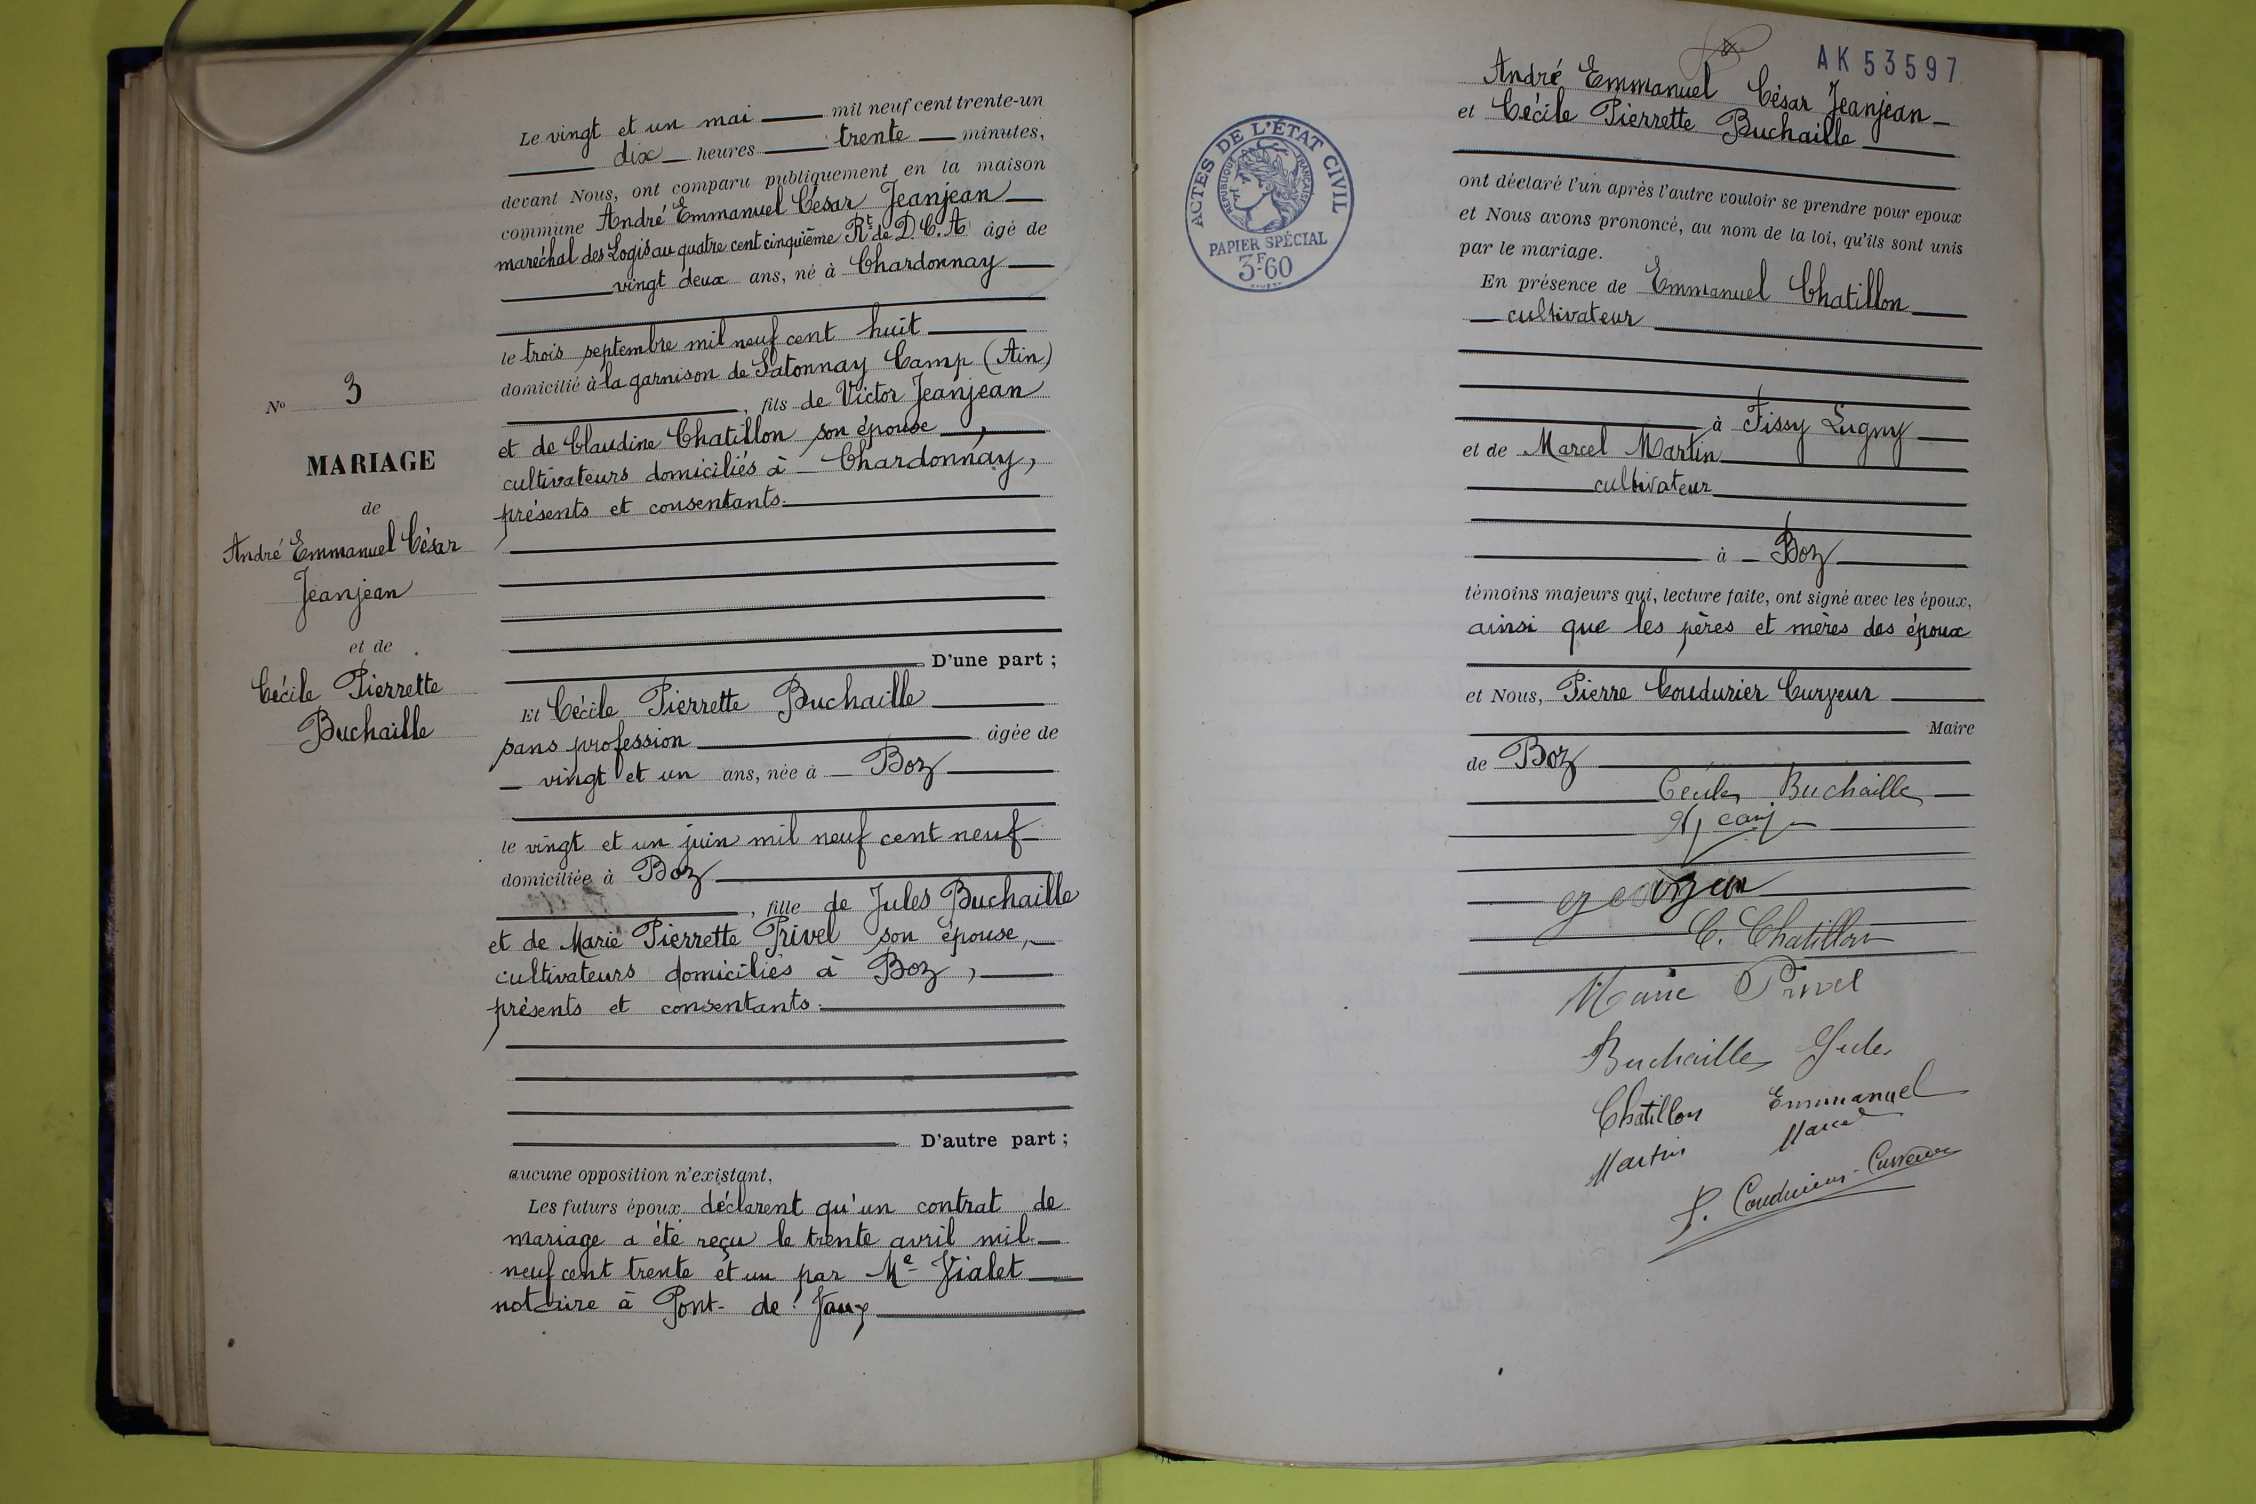 Le vingt et un mai mil neuf cent trente-un
dix heures trente minutes,
devant Nous, ont comparu publiquement en la maison
commune André Emmanuel César Jeanjean
maréchal des Logis au quatre cent cinquième Rt de D.C.A âgé de
vingt deux ans, né à Chardonnay
le trois septembre mil neuf cent huit
domicilié à la garnison de Satonnay Camp (Ain)
, fils de Victor Jeanjean
et de Claudine Chatillon son épouse,
cultivateurs domiciliés à Chardonnay,
présents et consentants.
D'une part ;
Et Cécile Pierrette Buchaille
sans profession âgée de
vingt et un ans, née à Boz
le vingt et un juin mil neuf cent neuf
domiciliée à Boz
, fille de Jules Buchaille
et de Marie Pierrette Privel son épouse,
cultivateurs domiciliés à Boz,
présents et consentants.
D'autre part ;
aucune opposition n'existant,
Les futurs époux déclarent qu'un contrat de
mariage a été reçu le trente avril mil
neuf cent trente et un par Me Vialet
notaire à Pont-de-Vaux
No 3
MARIAGE
de
André Emmanuel César
Jeanjean
et de
Cécile Pierrette
Buchaille
AK 53597
André Emmanuel César Jeanjean
et Cécile Pierrette Buchaille
ont déclaré l'un après l'autre vouloir se prendre pour epoux
et Nous avons prononcé, au nom de la loi, qu'ils sont unis
par le mariage.
En présence de Emmanuel Chatillon
cultivateur
à Fissy Lugny
et de Marcel Martin
cultivateur
à Boz
témoins majeurs qui, lecture faite, ont signé avec les époux,
ainsi que les pères et mères des époux
et Nous, Pierre Coudurier Curveur
Maire
de Boz
Cécile Buchaille
C. Chatillon
Marie Privel
Buchaille Jules
Chatillon Emmanuel
Martin Marcel
P. Coudurier-Curveur
ACTES DE L'ÉTAT CIVIL
RÉPUBLIQUE FRANÇAISE
PAPIER SPÉCIAL
3F60